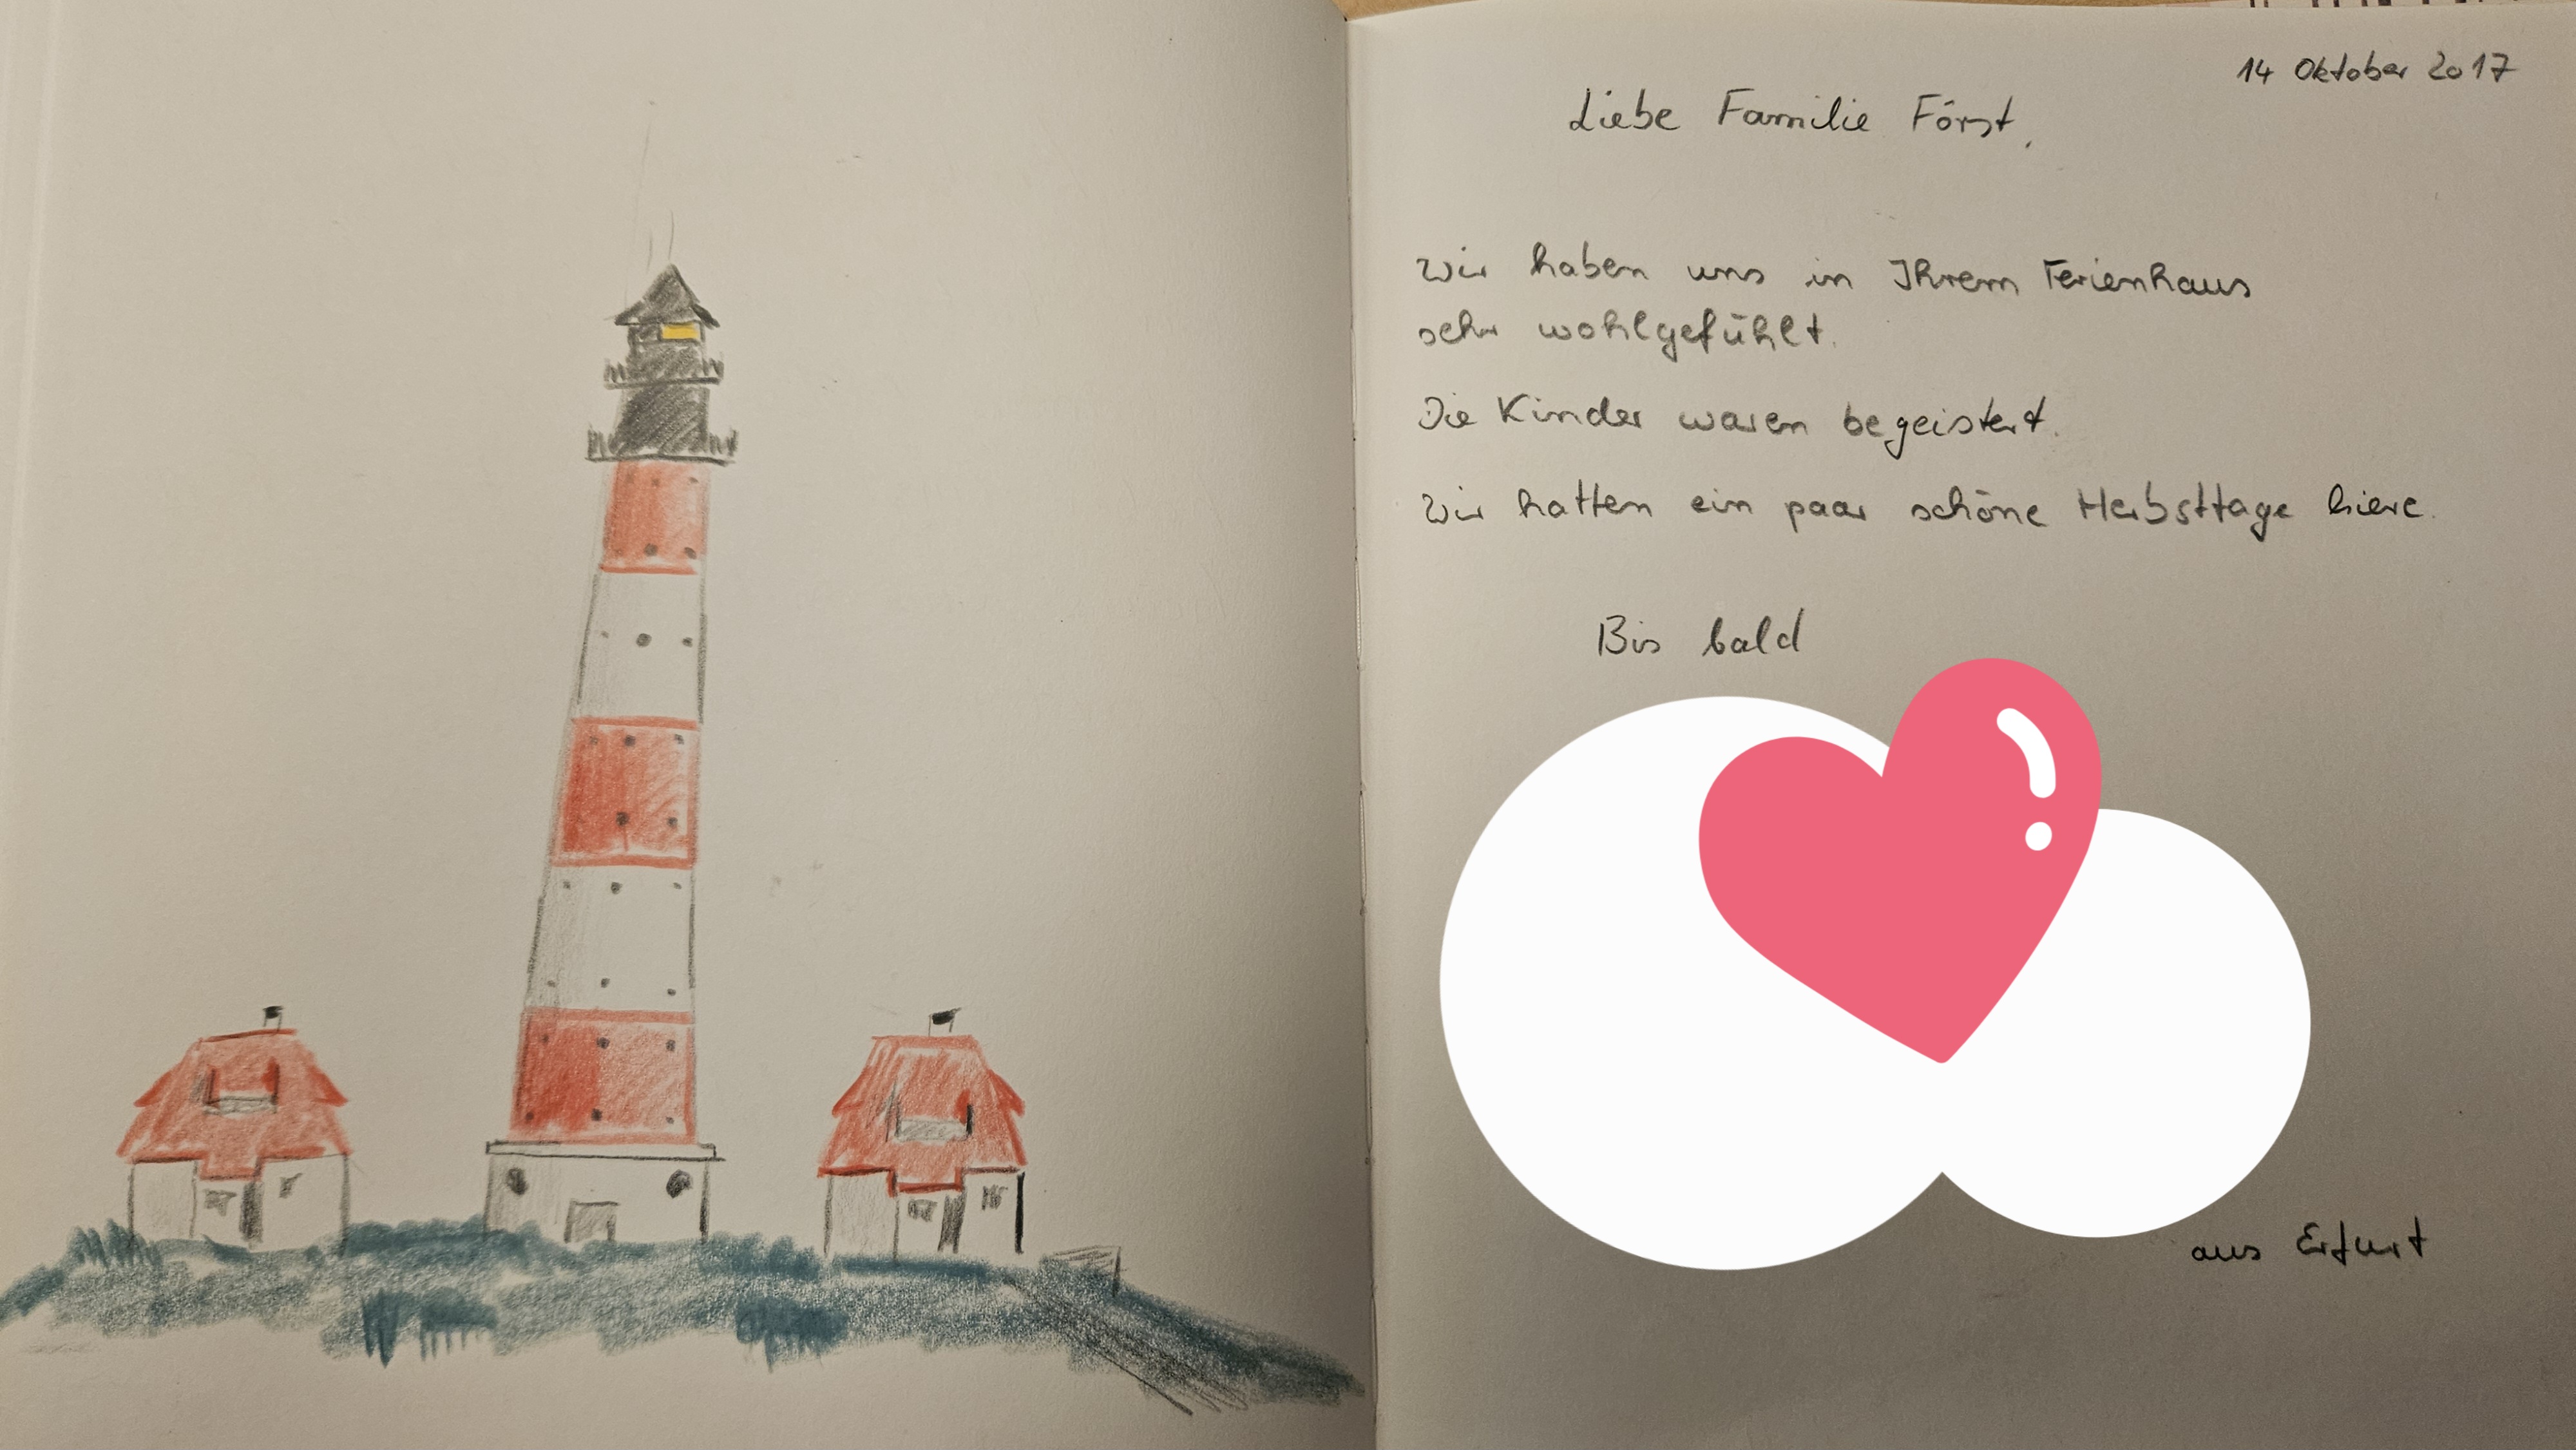 14 Oktober 2017
Liebe Familie Först,
Wir haben uns in Ihrem Ferienhaus
sehr wohlgefühlt.
Die Kinder waren begeistert.
Wir hatten ein paar schöne Herbsttage hier.
Bis bald
aus Erfurt